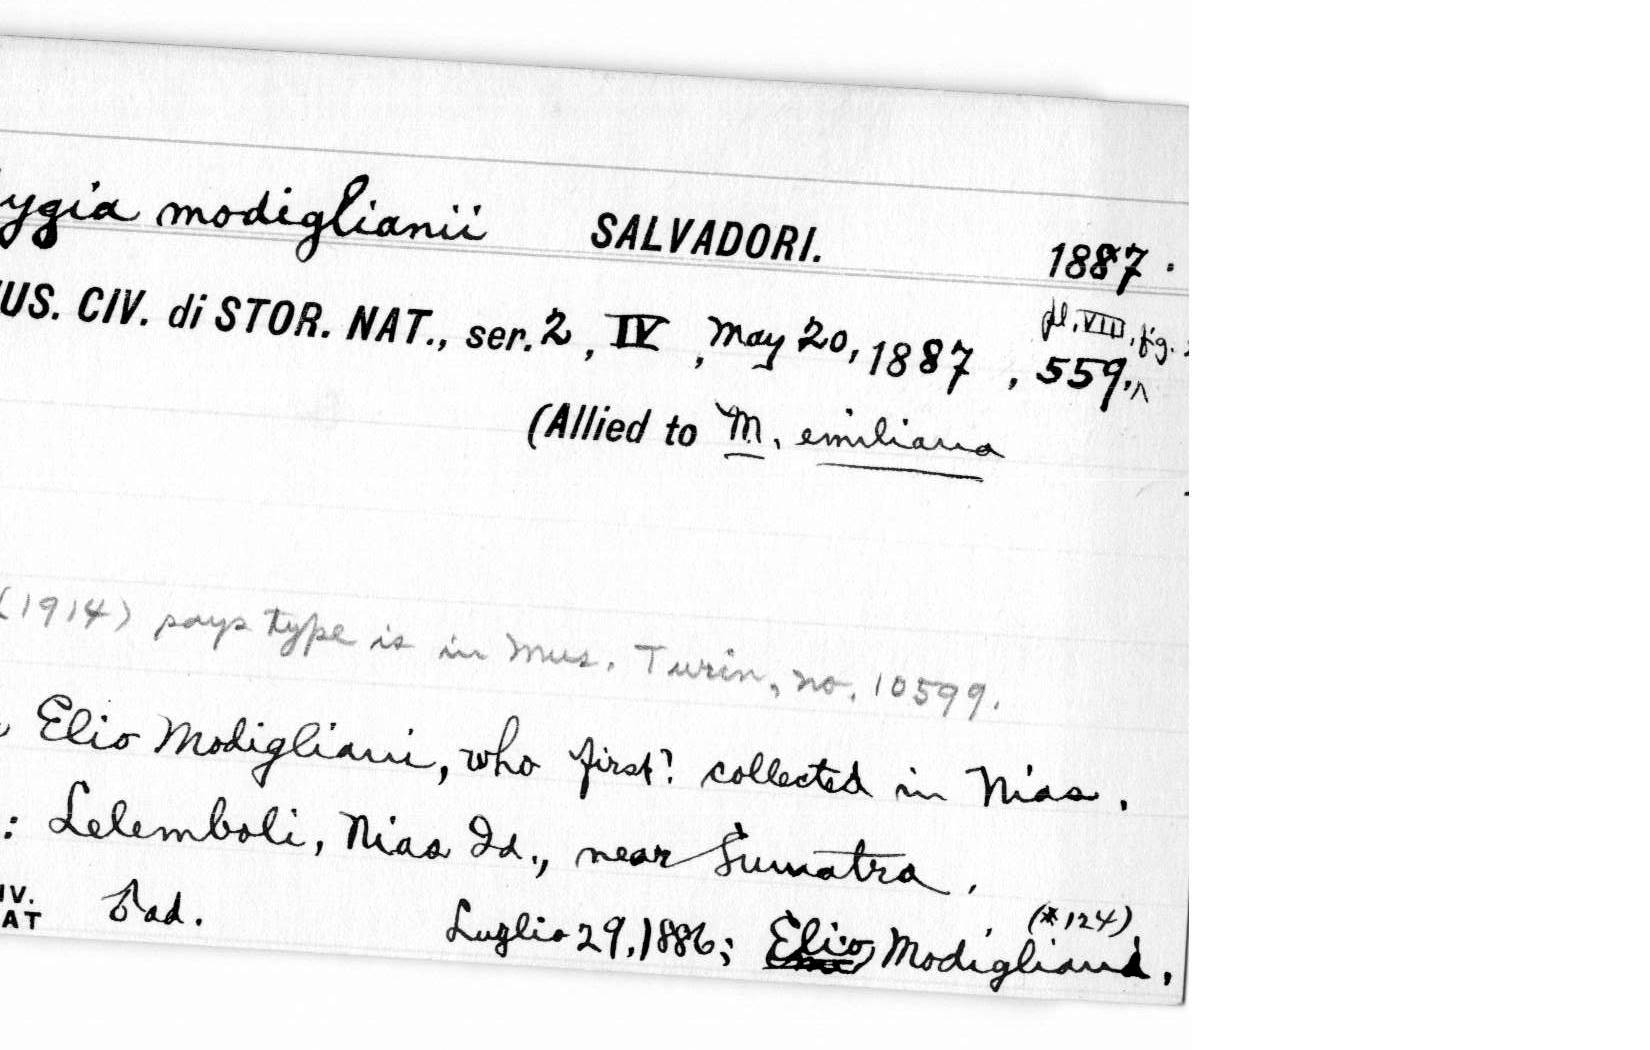 ygia modiglianii SALVADORI. 1887.
US. CIV. di STOR. NAT., ser. 2, IV, May 20, 1887, 559.
pl. VIII, fig.
(Allied to M. emiliana
(1914) says type is in Mus. Turin, no. 10599.
Elio Modigliani, who first? collected in Nias.
: Lelemboli, Nias Id., near Sumatra.
IV.
AT ad. Luglio 29, 1886; Elio Modigliani,
(*124)